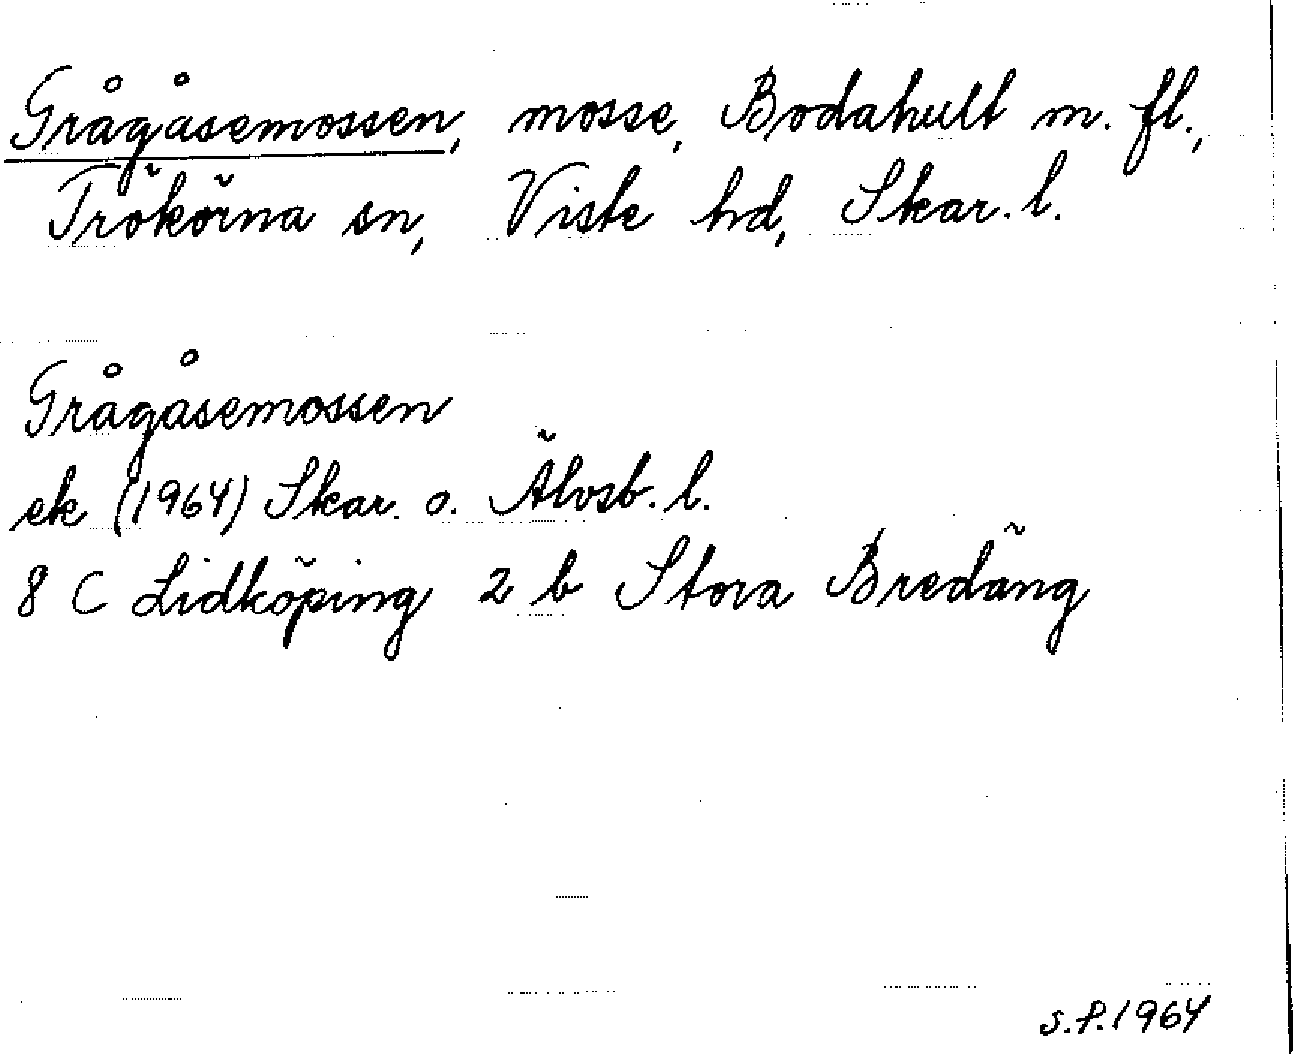 Grågåsemossen, mosse, Bodahult m. fl.,
Trökörna sn, Viste hd, Skar. l.
Grågåsemossen
ek (1964) Skar. o. Älvsb. l.
8 C Lidköping 2 b Stora Bredäng
S.P. 1964